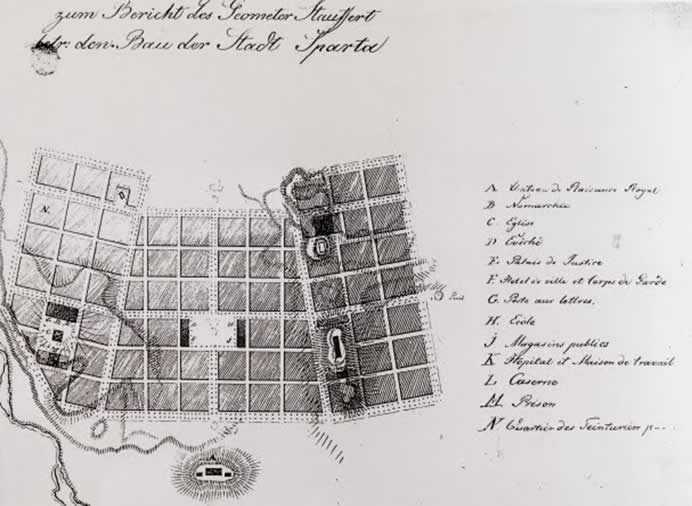 zum Bericht des Geometer Stauffert
betr: den Bau der Stadt Sparta
A Château de Plaisance Royal
B Nomarchie
C Eglise
D Evêché
E Palais de Justice
F Hotel de ville et Corps de Garde
G. Poste aux lettres.
H. Ecole
J Magasins publics
K Hôpital et Maison de travail
L Caserne
M Prison
N Quartier des Teinturiers
N.
A